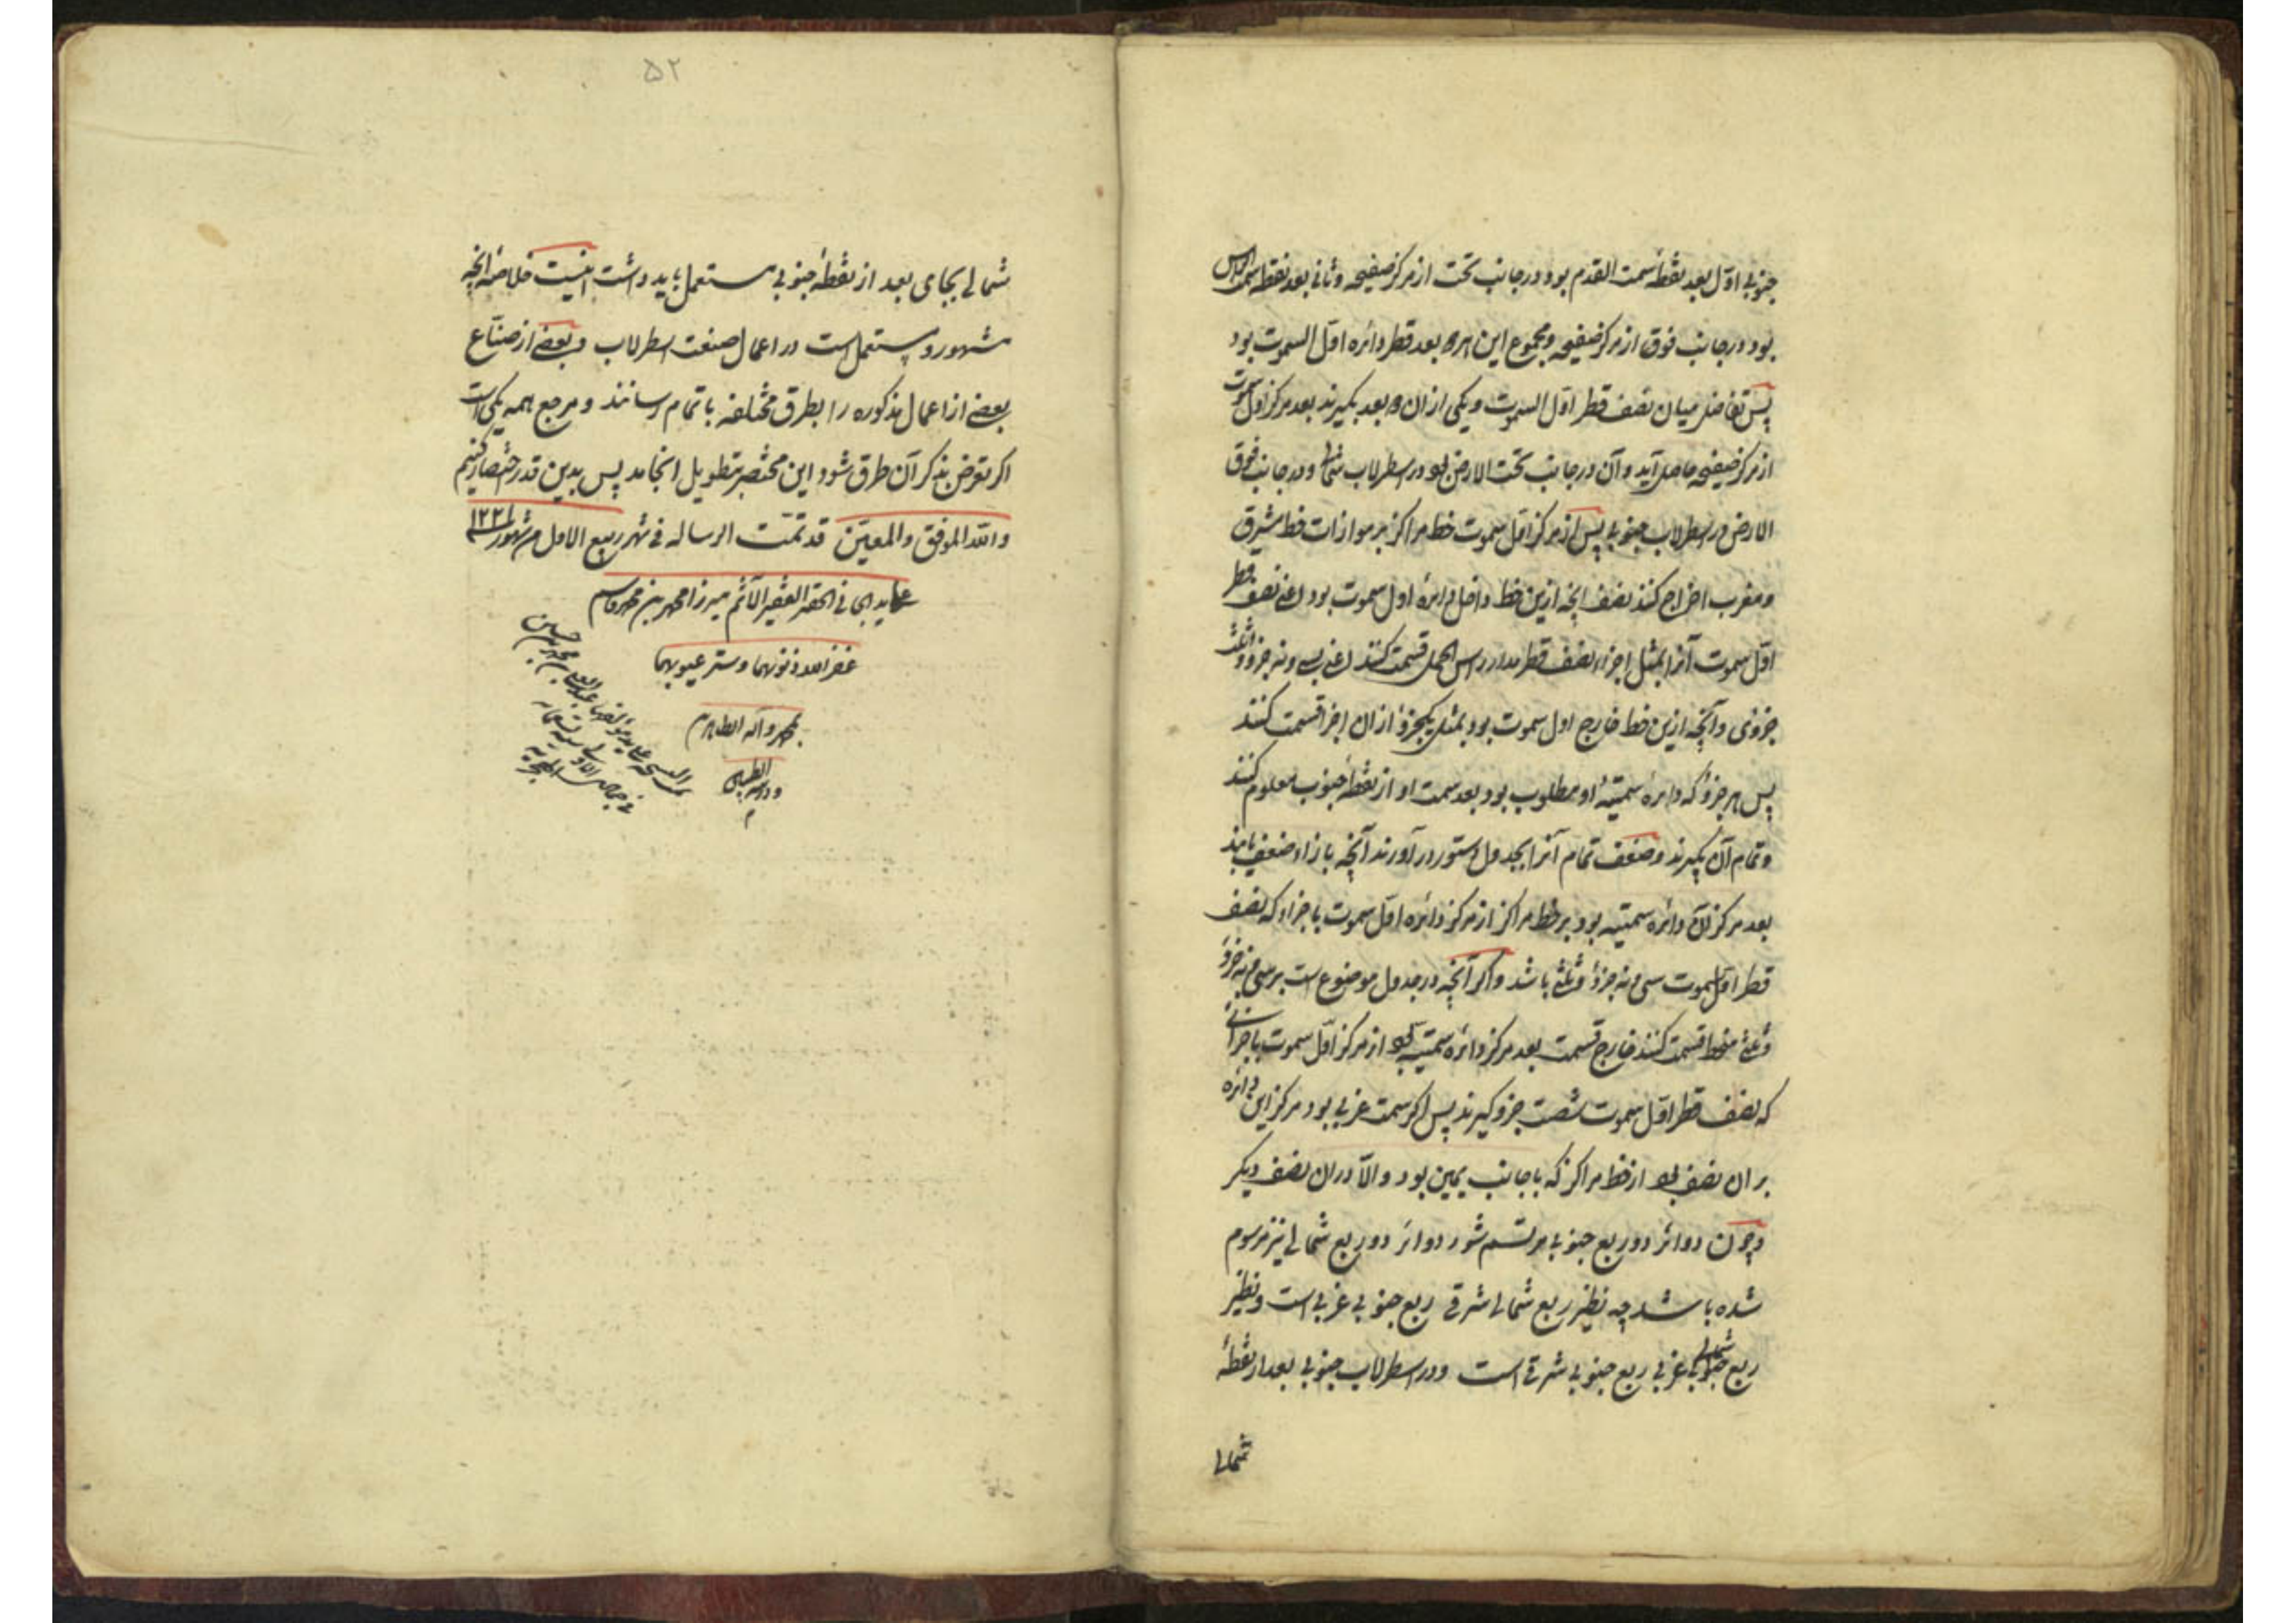 جنوبی اول بعد نقطهٔ سمت القدم بود در جانب تحت از مرکز صفیحه و ثانی بعد نقطه سمت الراس
بود در جانب فوق از مرکز صفیحه و مجموع این هر دو بعد قطر دائره اول السموت بود
پس تفاضل میان نصف قطر اول السموت و یکی از ان دو بعد بکیرند بعد مرکز اول سموت
از مرکز صفیحه حاصل آید و آن در جانب تحت الارض بود در اسطرلاب شمالی و در جانب فوق
الارض در اسطرلاب جنوبی پس از مرکز اول سموت خط مراکز بر موازات خط مشرق
و مغرب اخراج کنند نصف انچه ازین خط داخل دائرهٔ اول سموت بود اعنی نصف قطر
اول سموت آنرا بمثل اجزاء نصف قطر مدار راس الحمل قسمت کنند اعنی بسی و نه جزو و ثلث
جزوی و آنچه ازین خط خارج اول سموت بود بمثل یکجزؤ از ان اجزا قسمت کنند
پس هر جزؤ که دائرهٔ سمتیهٔ او مطلوب بود بعد سمت او از نقطهٔ جنوب معلوم کنند
و تمام آن بکیرند و ضعف تمام آنرا بجدول دستور در آورند آنچه بازاء ضعف یابند
بعد مرکز آن دائره سمتیه بود بر خط مراکز از مرکز دائره اول سموت باجزاء که نصف
قطر اول سموت سی و نه جزؤ و ثلثی باشد و اکر آنچه در جدول موضوع است بر سی و نه جزؤ
و ثلثی قسمت کنند خارج قسمت بعد مرکز دائره سمتیه بود از مرکز اول سموت باجزائی
که نصف قطر اول سموت شصت جزو کیرند پس اکر سمت غربی بود مرکز این دائره
بر ان نصف بود از خط مراکز که با جانب یمین بود و الّا در ان نصف دیکر
و چون دوائر دو ربع جنوبی مرتسم شود دوائر دو ربع شمالی نیز مرسوم
شده باشد چه نظیر ربع شمالی شرقی ربع جنوبی غربی است و نظیر
ربع شمالی غربی ربع جنوبی شرقی است و در اسطرلاب جنوبی بعد از نقطهٔ
شمالی
۵۲
شمالی بجای بعد از نقطهٔ جنوبی مستعمل باید داشت اینست خلاصهٔ انچه
مشهور و مستعمل است در اعمال صنعت اسطرلاب و بعضی از صنّاع
بعضی از اعمال مذکوره را بطرق مختلفه باتمام رسانند و مرجع همه یکی است
اکر تعرض بذکر آن طرق شود این مختصر بتطویل انجامد پس بدین قدر اختصار کنیم
و الله الموفق و المعین قد تمّت الرساله فی شهر ربیع الاول من شهور ۱۲۲۱
علی ید الجانی الحقیر الفقیر الآثم میرزا محمد بن محمد قاسم
غفر الله ذنوبهما و ستر عیوبهما
بمحمد و آله الطاهرین